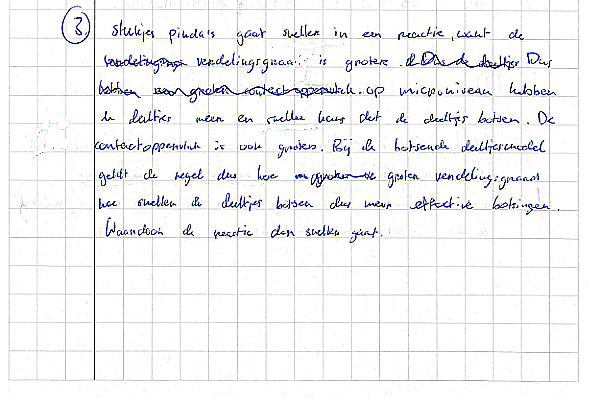 3. Stukjes pinda's gaat sneller in een reactie, want de
verdelingsgraad is groter. Dus
op microniveau hebben
de deeltjes meer en sneller kans dat de deeltjes botsen. De
contactoppervlak is ook groter. Bij de botsende deeltjesmodel
geldt de regel dus hoe groter verdelingsgraad
hoe sneller de deeltjes botsen dus meer effective botsingen.
Waardoor de reactie dan sneller gaat.